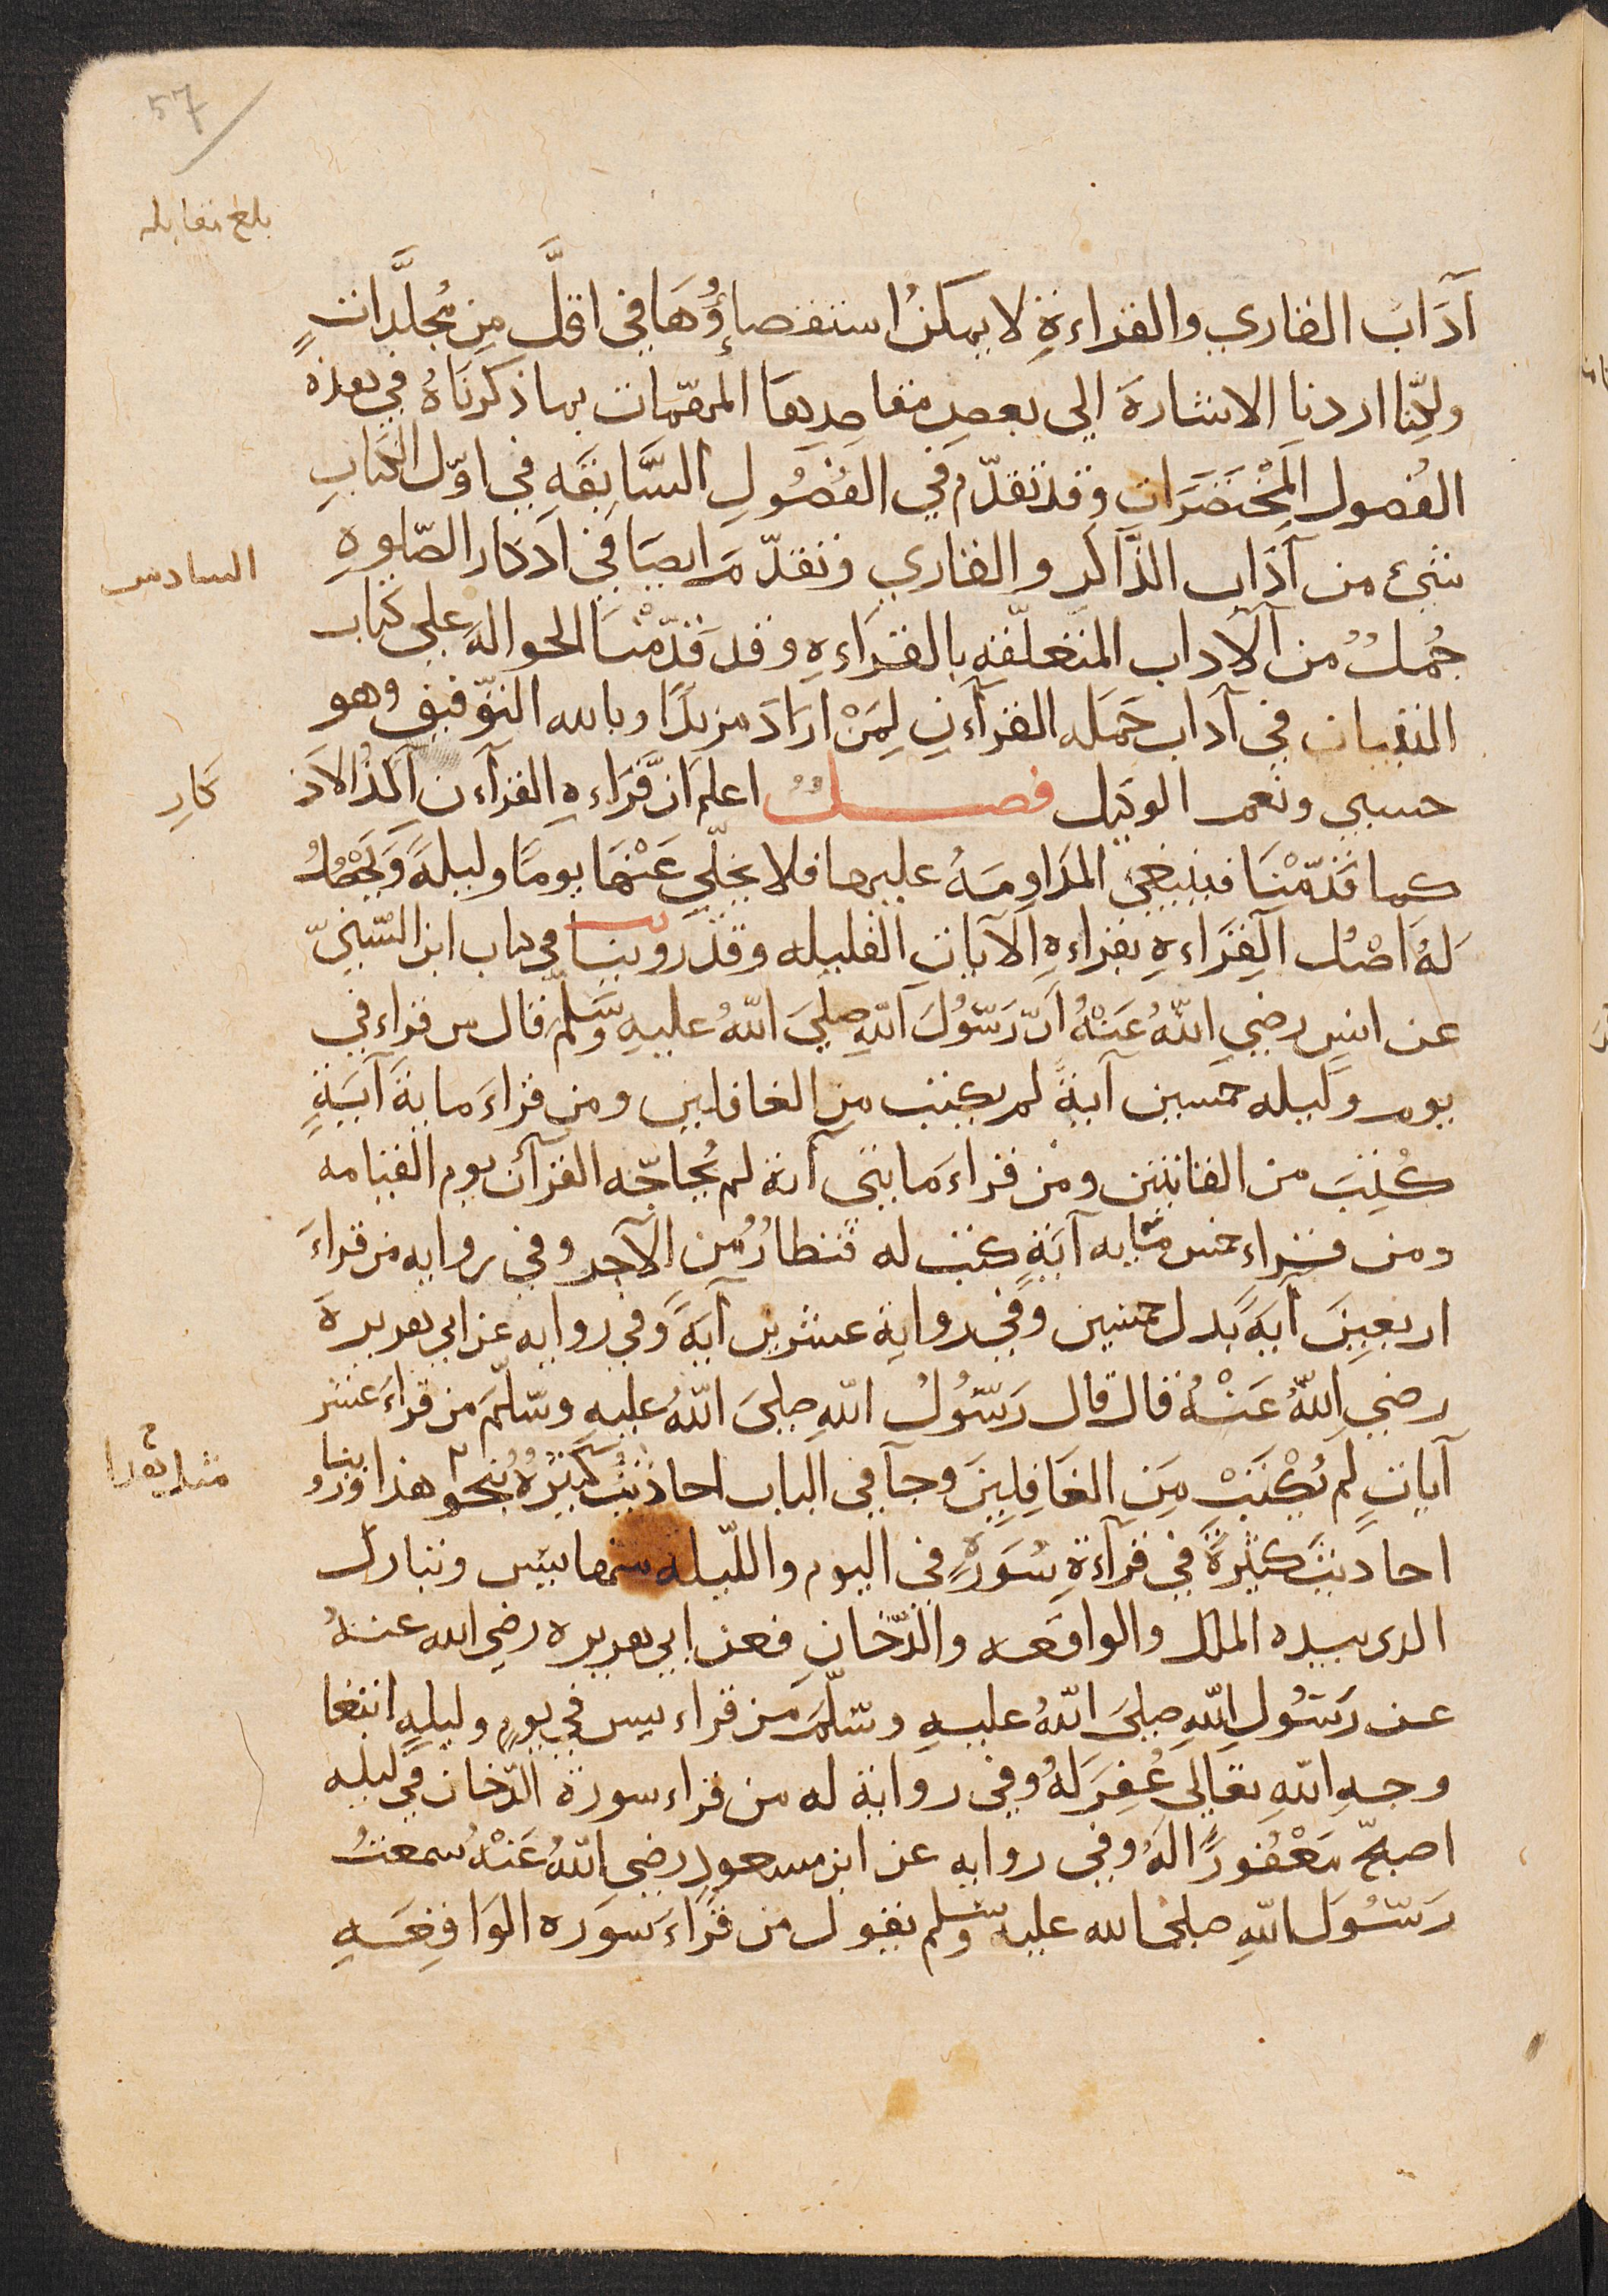 57
بلغ مقابله
آدَابُ القاري والقراءةِ لا يمكنُ استقصاؤُهَا في اقلَّ مِن مُجلَّداتٍ
ولكنّا اردنا الاشارةَ الي بعضِ مقاصِدِها المهمّات بما ذكرنَاهُ في هذه
الفُصول المُخْتَصَرَاتِ وقد تقدّم في الفُصُولِ السَّابِقَهِ في اوّل الكتابِ
شيئ من آدَابِ الذّاكر والقاري وتقدّمَ ايضًا في اذكار الصّلوهِ
السادس
جُملٌ من الآداب المتعلّقه بالقراءهِ وقد قدّمْنَا الحوالهَ علي كتاب
التبيان في آداب حَمَله القرآن لِمَنْ ارَادَ مزيدًا وبالله التوّفيق وهو
حسبي ونعم الوكيل فصل اعلم انّ قرَاءهِ القرآن آكدُ الاذ
كارِ
كما قدّمْنَا فينبغي المدَاومَهُ عليها فلا يخلّي عَنْهَا يومًا وليلهً وَيَحْصُلُ
لهُ اصْلُ القِرَاءهِ بقراءهِ الآياتِ القليله وقد روينا في كتاب ابن السّنّيّ
عن انسٍ رضيِ اللهُ عَنْهُ انّ رَسُولَ اللهِ صليَ اللهُ عليهِ وسَلّم قال من قراء في
يوم وليله خمسين آيةً لم يكتب من الغافلين ومن قراءَ مايةَ آيَةٍ
كُتِبَ من القانتين ومن قراءَ مايتى آية لم يُحاجّه القرآن يوم القيامه
ومن قراء خمس مايه آيَةٍ كتب له قنطارٌ من الآجر وفي روايه من قراءَ
اربعينَ آيهً بدل خمسين وفي روايةِ عشرين آيةً وفي روايه عن ابي هريرةَ
رضي اللهُ عَنْهُ قال قال رَسُولُ اللهِ صليَ اللهُ عليهِ وسَلّمَ من قراءَ عشر
آياتٍ لم يُكْتَبْ مِنَ الغَافِلِينَ وجآ في الباب احاديثُ كثيرَهٌ بنحو هذا وروينا
احاديثَ كثيرةً في قرآءَةِ سُوَرٍ في اليوم والليلة منها يس وتبارك
الدى بيده الملك والواقعه والدّخانِ فعن ابي هريره رضي الله عنهُ
عن رَسُولِ اللهِ صليَ اللهُ عليهِ وسَلّمَ من قراء يس في يومٍ وليلهٍ ابتغا
وجهِ اللهِ تعَالي غُفِرَ لهُ وفي رواية له من قراء سورة الدّخان في ليله
اصبحَ مَغْفُورًا لَهُ وفي روايه عن ابن مسعودٍ رضي اللهُ عَنْهُ سمعتُ
رَسُولَ اللهِ صلى الله عليه وسلم يقول من قراءَ سوَره الوَاقِعَهِ